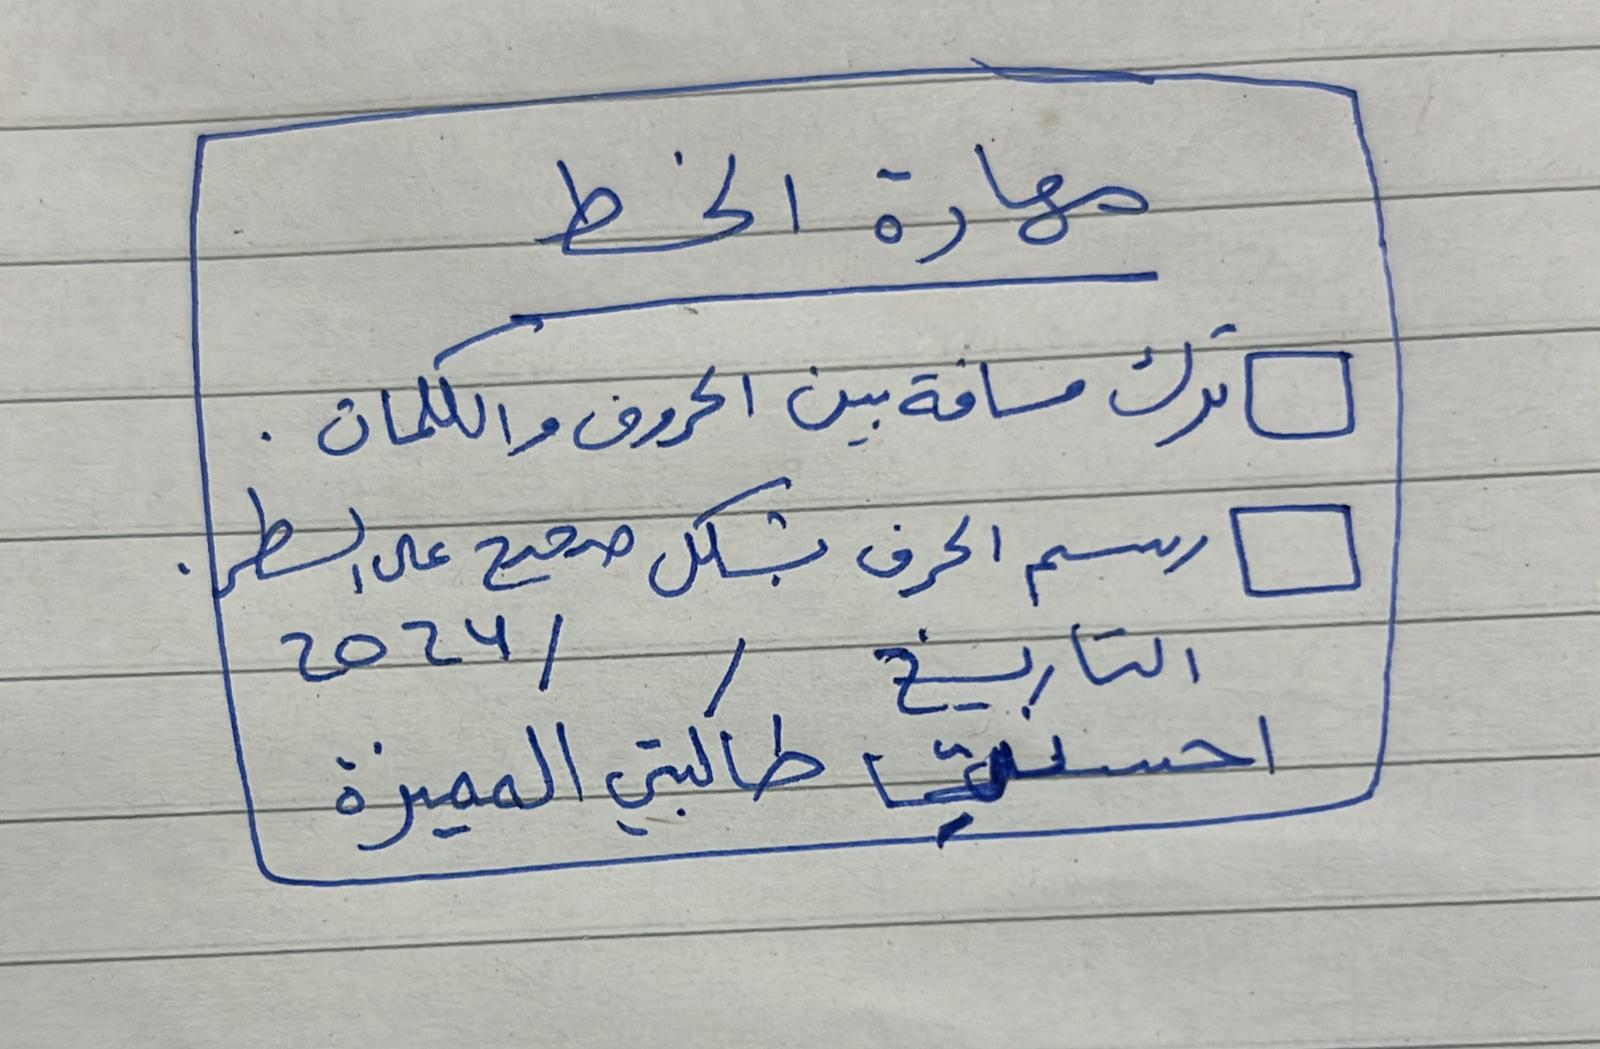 مهارة الخط
ترك مسافة بين الحروف والكلمات .
رسم الحرف بشكل صحيح على السطر .
التاريخ / / 2024
احسنتي يا طالبتي المميزة